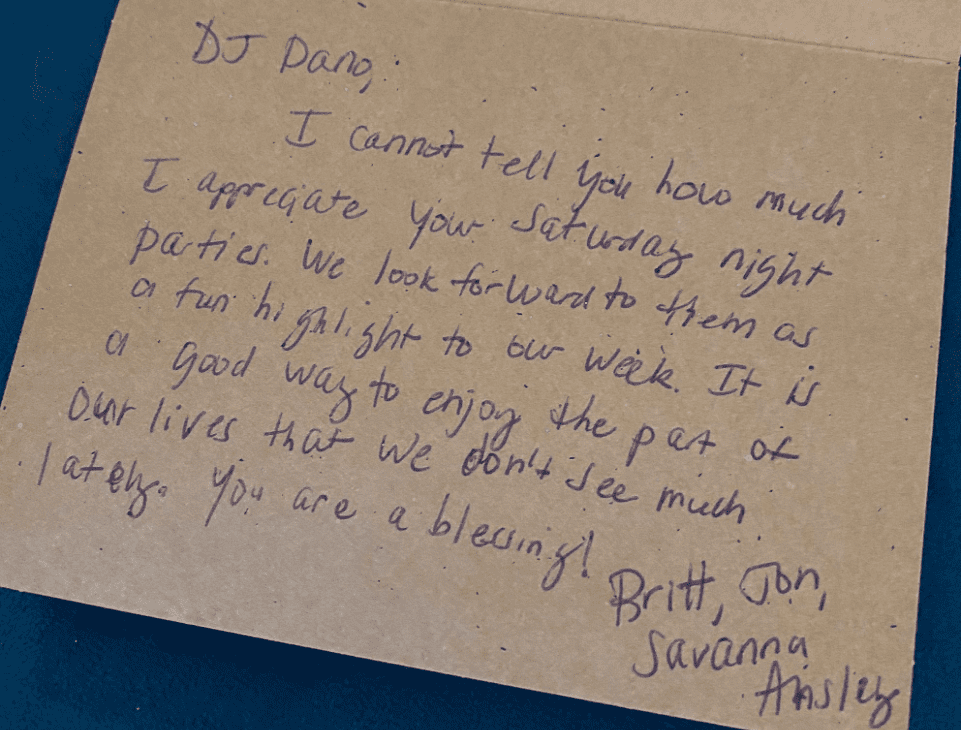 DJ Dano,
I cannot tell you how much
I appreciate your Saturday night
parties. We look forward to them as
a fun highlight to our week. It is
a good way to enjoy the part of
our lives that we don't see much
lately. You are a blessing!
Britt, Jon,
Savanna
Ansley